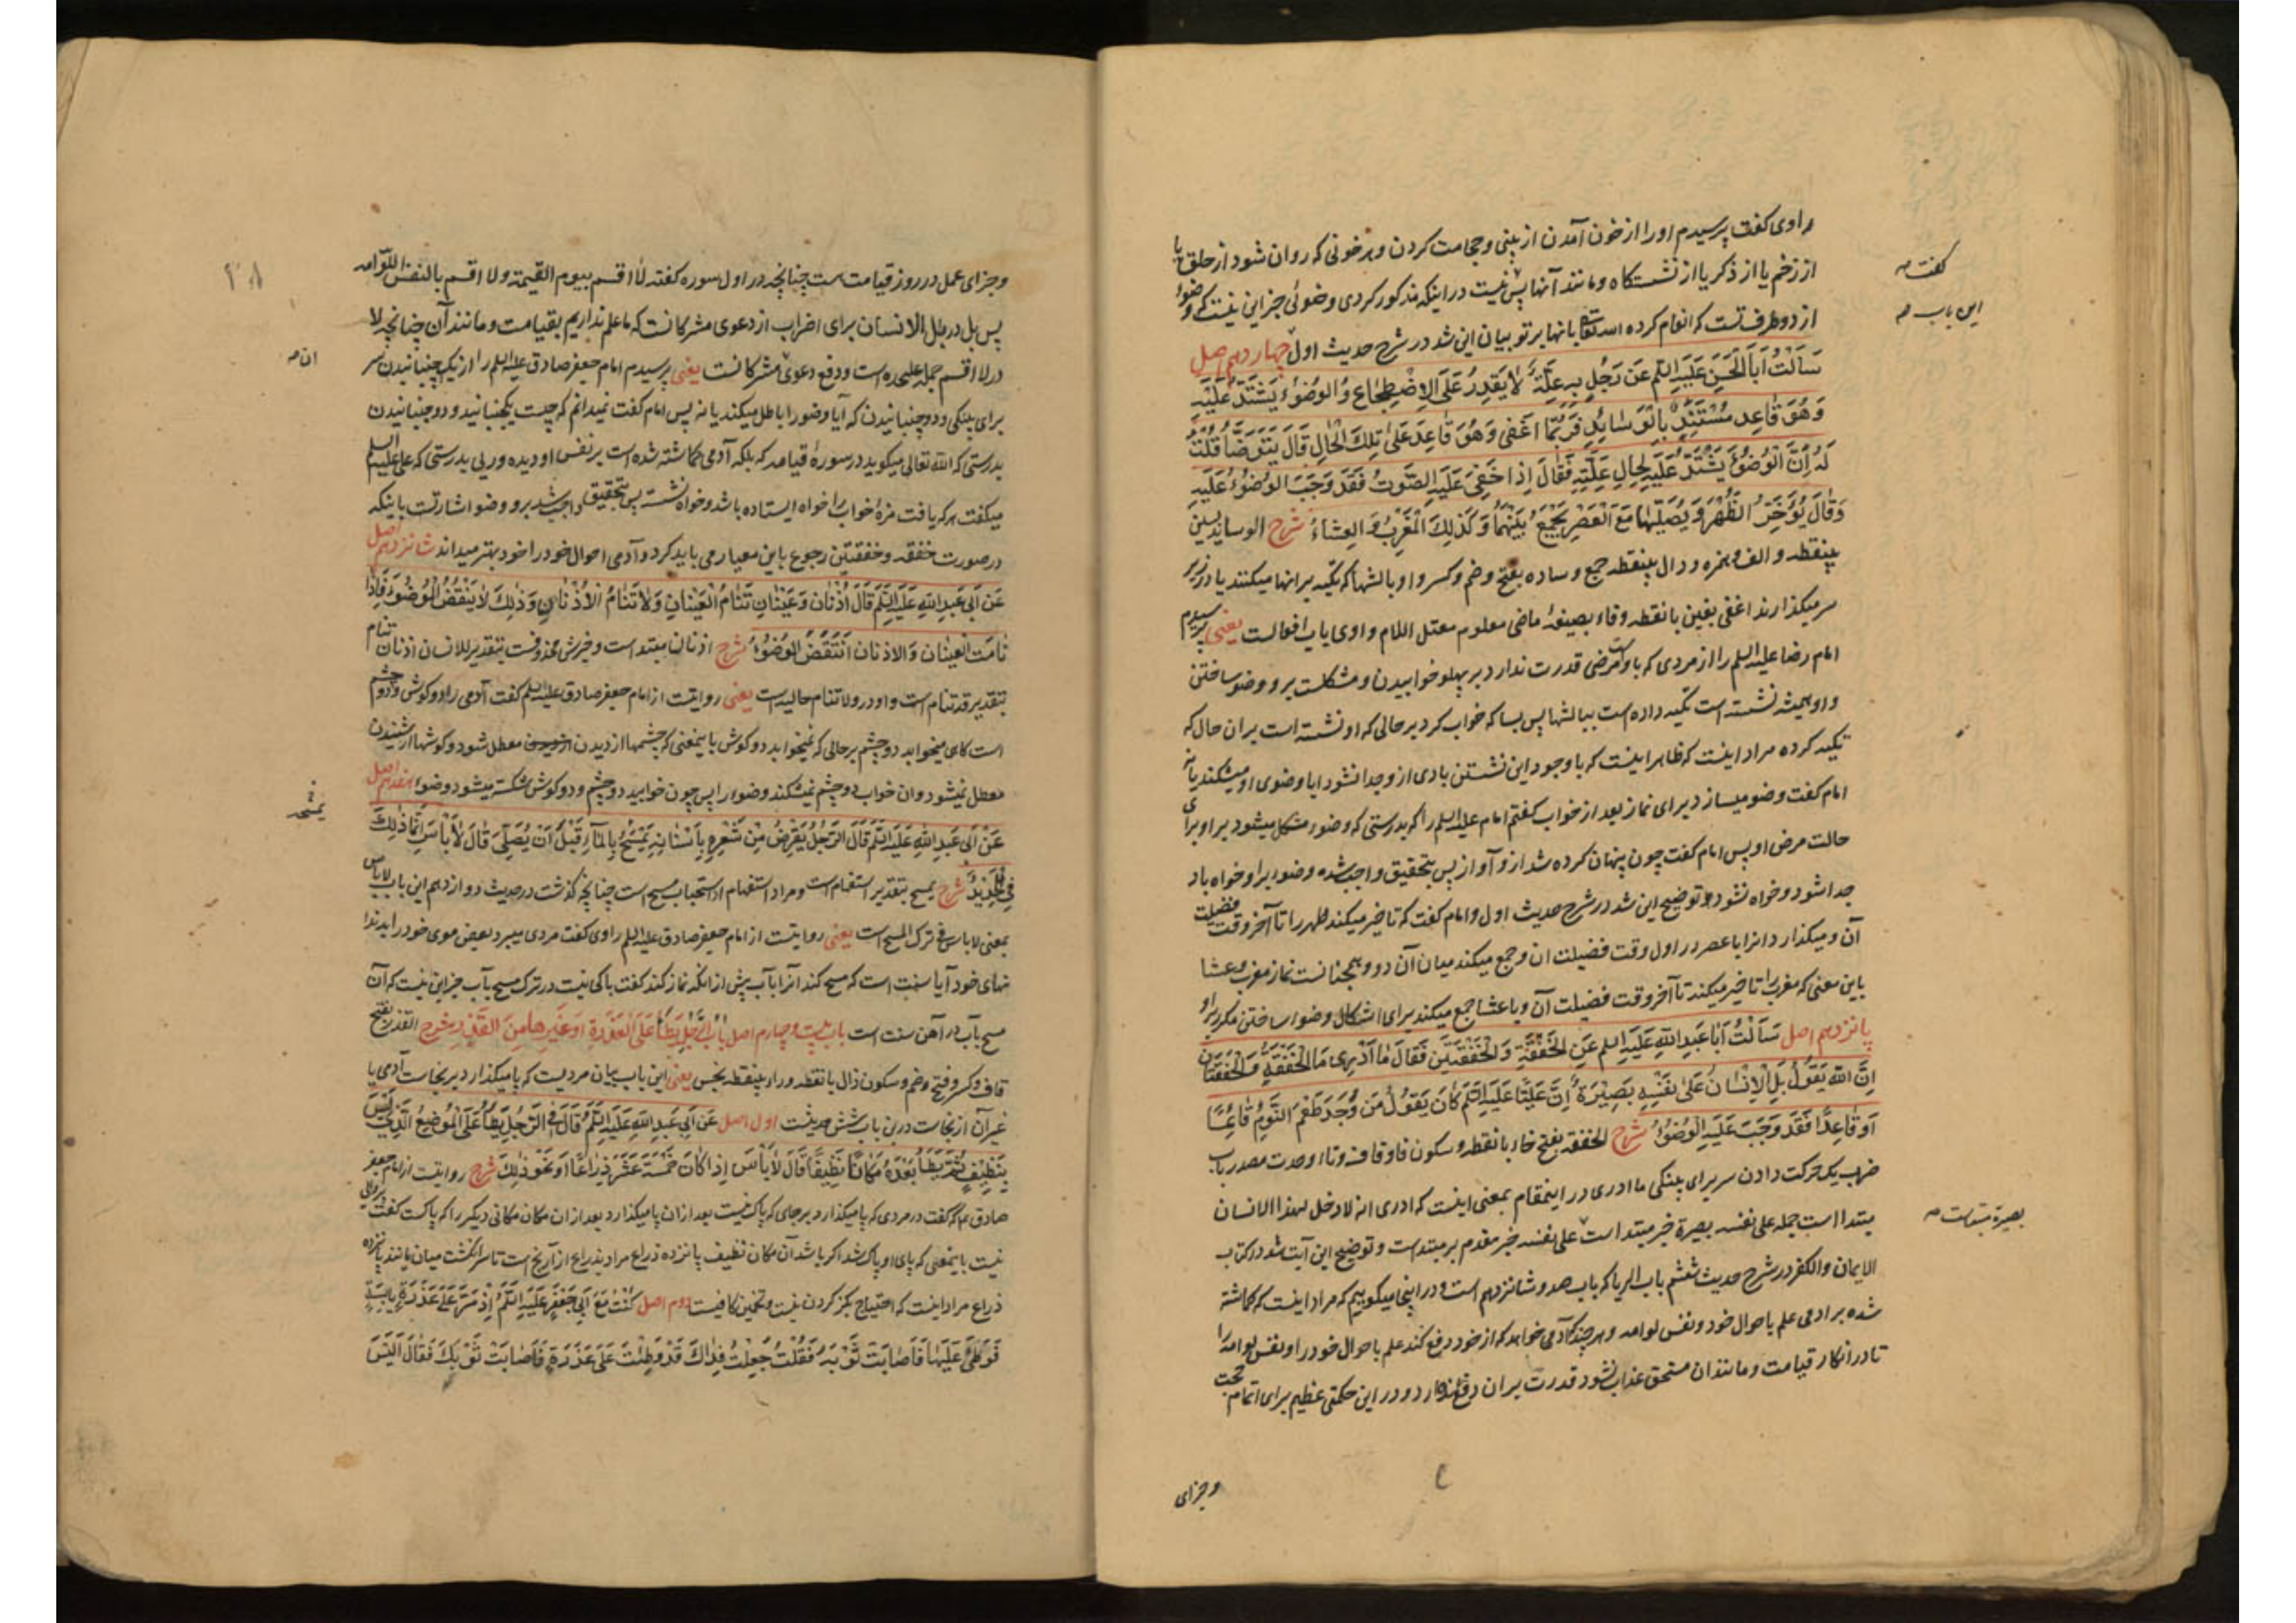 راوی کفت پرسیدم او را از خون آمدن از بینی و حجامت کردن و هر خونی که روان شود از حلق یا
از زخم یا از ذکر یا از نشستکاه و مانند آنها پس نیست در اینکه مذکور کردی وضوئی جز این نیست که وضوء
از دو طرف تست که انعام کرده الله تعالی بانها بر تو بیان این شد در شرح حدیث اول چهاردهم اصل
سَاَلْتُ اَبَا الْحَسَنِ عَلَیْهِ السَّلَم عَنْ رَجُلٍ بِهِ عِلَّةٌ لَا یَقْدِرُ عَلَی الِاضْطِجَاعِ وَ الْوُضُوءُ یَشْتَدُّ عَلَیْهِ
وَ هُوَ قَاعِد مُسْتَنِدٌ بِالْوَسَائِدِ فَرُبَّمَا اَغْفٰی وَ هُوَ قَاعِد عَلٰی تِلْكَ الْحَالِ قَالَ یَتَوَضَّأُ قُلْتُ
لَهُ اِنَّ الْوُضُوءَ یَشْتَدُّ عَلَیْهِ لِحَالِ عِلَّتِهِ فَقَالَ اِذَا خَفِیَ عَلَیْهِ الصَّوْتُ فَقَدْ وَجَبَ الْوُضُوءُ عَلَیْهِ
وَ قَالَ یُؤَخِّرُ الظُّهْرَ وَ یُصَلِّیْهَا مَعَ الْعَصْرِ یَجْمَعُ بَیْنَهُمَا وَ كَذٰلِكَ الْمَغْرِبُ وَ الْعِشَاءُ شرح الوسائد بسین
بینقطه و الف و همزه و دال بینقطه جمع وساده بفتح و ضم و کسر واو بالشها که تکیه بر انها میکنند یا در زیر
سر میکذارند اغفی بغین بانقطه و فاء بصیغهٔ ماضی معلوم معتل اللام واوی باب افعالست یعنی پرسیدم
امام رضا علیه السلم را از مردی که با او مرضی قدرت ندارد بر پهلو خوابیدن و مشکلست برو وضو ساختن
و او همیشه نشسته است تکیه داده است ببالشها پس بسا که خواب کرد بر حالی که او نشسته است بران حال که
تکیه کرده مراد اینست که ظاهر اینست که با وجود این نشستن بادی ازو جدا نشود ایا وضوی او میشکند یا نه
امام کفت وضو میسازد برای نماز بعد از خواب کفتم امام علیه السلم را که بدرستی که وضوء مشکل میشود بر او برای
حالت مرض او پس امام کفت چون پنهان کرده شد ازو آواز پس بتحقیق واجب شده وضوء بر او خواه باد
جدا شود و خواه نشود و توضیح این شد در شرح حدیث اول و امام کفت که تاخیر میکند ظهر را تا آخر وقت فضیلت
آن و میکذارد انرا با عصر در اول وقت فضیلت ان و جمع میکند میان آن دو و همچنانست نماز مغرب و عشا
باین معنی که مغرب را تاخیر میکند تا آخر وقت فضیلت آن و با عشا جمع میکند برای اشکال وضو ساختن مکرر بر او
پانزدهم اصل سَاَلْتُ اَبَا عَبْدِ اللهِ عَلَیْهِ السلم عَنِ الْخَفْقَةِ وَ الْخَفْقَتَیْنِ فَقَالَ مَا اَدْرِی مَا الْخَفْقَةُ وَ الْخَفْقَتَانِ
اِنَّ اللهَ یَقُوْلُ بَلِ الْاِنْسَانُ عَلٰی نَفْسِهِ بَصِیْرَةٌ اِنَّ عَلِیًّا عَلَیْهِ السَّلَم كَانَ یَقُوْلُ مَنْ وَجَدَ طَعْمَ النَّوْمِ قَائِمًا
اَوْ قَاعِدًا فَقَدْ وَجَبَ عَلَیْهِ الْوُضُوْءُ شرح الخفقه بفتح خاء بانقطه و سکون فا و قاف و تاء وحدت مصدر باب
ضرب یک حرکت دادن سر برای پینکی ما ادری در اینمقام بمعنی اینست که ادری انه لا دخل لهذا الانسان
مبتدا است جمله علی نفسه بصیرة خبر مبتدا است علی نفسه خبر مقدم بر مبتدست و توضیح این آیت شد در کتاب
الایمان والکفر در شرح حدیث ششم باب الریا که باب صد و شانزدهم است و در اینجا میکوییم که مراد اینست که کماشته
شده بر ادمی علم باحوال خود و نفس لوامه و هر چند که آدمی خواهد که از خود دفع کند علم باحوال خود را و نفس لوامه را
تا در انکار قیامت و مانند ان مستحق عذاب نشود قدرت بر ان دفع ندارد و در این حکمتی عظیم برای اتمام حجت
کفت صہ
این باب صہ
بصیرة مبتداست صہ
وجزای
و جزای عمل در روز قیامت هست چنانچه در اول سوره کفته لا اقسم بیوم القیمة ولا اقسم بالنفس اللوّامه
پس بل در بل الانسان برای اضراب از دعوی مشرکانست که ما علم نداریم بقیامت و مانند آن چنانچه لا
در لا اقسم جمله علیحده است و دفع دعوی مشرکانست یعنی پرسیدم امام جعفر صادق علیه السلم را از یک جنبانیدن سر
برای پینکی و دو جنبانیدن که آیا وضو را باطل میکند یا نه پس امام کفت نمیدانم که چیست یکجنبانید و دو جنبانیدن
بدرستی که الله تعالی میکوید در سورهٔ قیامه که بلکه آدمی کماشته شده است بر نفس او دیده وری بدرستی که علی علیه السلم
میکفت هر که یافت مزهٔ خواب را خواه ایستاده باشد و خواه نشسته پس بتحقیق واجب شد برو وضو اشارتست باینکه
در صورت خفقه و خفقتین رجوع باین معیار می باید کرد و آدمی احوال خود را خود بهتر میداند شانزدهم اصل
عَنْ اَبِی عَبْدِ اللهِ عَلَیْهِ السَّلَم قَالَ اُذُنَانِ وَ عَیْنَانِ تَنَامُ الْعَیْنَانِ وَ لَا تَنَامُ الْاُذُنَانِ وَ ذٰلِكَ لَا یَنْقُضُ الْوُضُوْءَ فَاِذَا
نَامَتِ الْعَیْنَانِ وَ الْاُذُنَانِ اَنْتَقَضَ الْوُضُوْءُ شرح اذنان مبتدا است و خبرش محذوفست بتقدیر للانسان اذنان تنام
بتقدیر قد تنام است و واو در ولا تنام حالیه است یعنی روایتست از امام جعفر صادق علیه السلم کفت آدمی را دو کوش و دو چشم
است کاهی میخوابد دو چشم بر حالی که نمیخوابد دو کوش باینمعنی که چشمها از دیدن معطل شود و کوشها از شنیدن
معطل نمیشود و ان خواب دو چشم نمیشکند وضوء را پس چون خوابید دو چشم و دو کوش شکسته میشود وضوء هفدهم اصل
عَنْ اَبِی عَبْدِ اللهِ عَلَیْهِ السَّلَم قَالَ الرَّجُلُ یَقْرِضُ مِنْ شَعْرِهِ بِاَسْنَانِهِ یَمْسَحُ بِالْمَاءِ قَبْلَ اَنْ یُصَلِّیَ قَالَ لَا بَاْسَ اِنَّمَا ذٰلِكَ
فِی الْحَدِیْدِ شرح یمسح بتقدیر استفهام است و مراد استفهام از استحباب مسح است چنانچه کذشت در حدیث دوازدهم این باب لا باس
بمعنی لا باس فی ترک المسح است یعنی روایتست از امام جعفر صادق علیه السلم راوی کفت مردی میبرد بعض موی خود را بدندا
نهای خود آیا سنت است که مسح کند انرا بآب پیش از انکه نماز کند کفت باکی نیست در ترک مسح بآب جز این نیست که آن
مسح بآب در آهن سنت است باب بیست و چهارم اصل بَابُ الرَّجُلِ یَطَأُ عَلَی الْعَذِرَةِ اَوْ غَیْرِهَا مِنَ الْقَذَرِ شرح القذر بفتح
قاف و کسر و فتح و ضم و سکون ذال بانقطه و راء بینقطه نجس یعنی این باب بیان مردیست که پا میکذارد بر نجاست آدمی یا
غیر آن از نجاست درین باب شش حدیثست اول اصل عَنْ اَبِی عَبْدِ اللهِ عَلَیْهِ السَّلَم قَالَ فِی الرَّجُلِ یَطَأُ عَلَی الْمَوْضِعِ الَّذِی لَیْسَ
بِنَظِیْفٍ ثُمَّ یَطَأُ بَعْدَهُ مَكَانًا نَظِیْفًا قَالَ لَا بَأْسَ اِذَا كَانَ خَمْسَةَ عَشَرَ ذِرَاعًا اَوْ نَحْوَ ذٰلِكَ شرح روایتست از امام جعفر
صادق ع که کفت در مردی که پا میکذارد بر جای که پاک نیست بعد از ان پا میکذارد بعد از ان مکان مکانی دیکر را که پاکست کفت پروائی
نیست باینمعنی که پای او پاک شد اکر باشد آن مکان نظیف پانزده ذراع مراد بذراع از آرنج است تا سر انکشت میان یا مانند پانزده
ذراع مراد اینست که احتیاج بکز کردن نیست و تخمین کافیست دوم اصل كُنْتُ مَعَ اَبِی جَعْفَرٍ عَلَیْهِ السَّلَم اِذْ مَرَّ عَلٰی عَذِرَةٍ یَابِسَةٍ
فَوَطِئَ عَلَیْهَا فَاَصَابَتْ ثَوْبَهُ فَقُلْتُ جُعِلْتُ فِدَاكَ قَدْ وَطِئْتَ عَلٰی عَذِرَةٍ فَاَصَابَتْ ثَوْبَكَ فَقَالَ اَلَیْسَ
ان صہ
۲۸